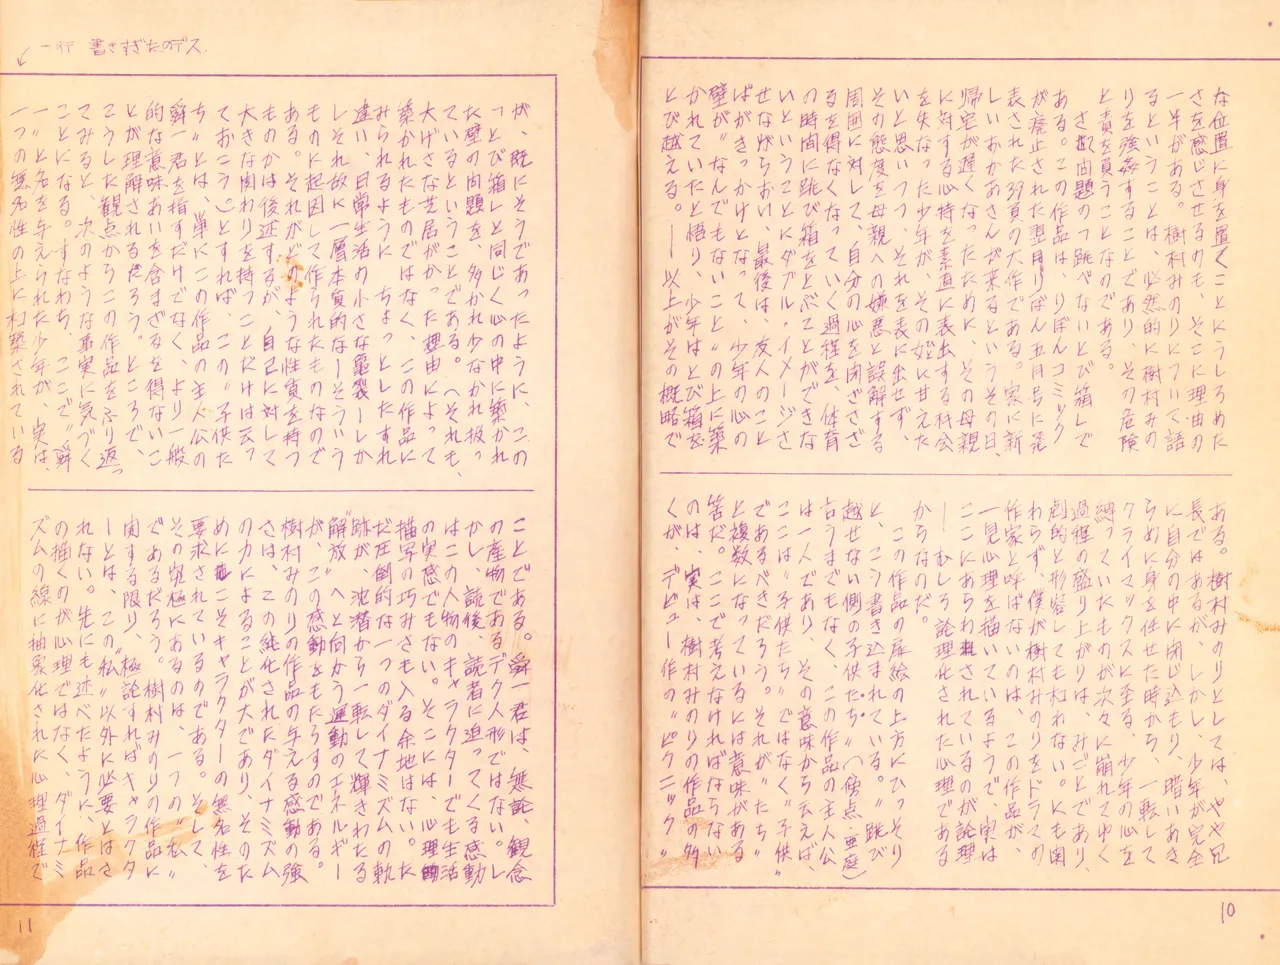 な位置に身を置くことにうしろめた
さを感じさせるのも、そこに理由の
一半がある。樹村みのりについて語
るということは、必然的に樹村みの
りを強姦することであり、その危険
と責を負うことなのである。
さて問題の“跳べないとび箱”で
ある。この作品は、りぼんコミック
が廃止された翌月りぼん五月号に発
表された39頁の大作である。家に新
しいおかあさんが来るというその日、
帰宅が遅くなったために、その母親
に対する心の持を素直に表出する機会
を失なった少年が、その父に甘えた
いと思いつつ、それを表に出せず、
その態度を母親への嫌悪と誤解する
周囲に対して、自分の心を閉ざさざ
るを得なくなっていく過程を、体育
の時間に跳び箱をとぶことができな
いということにダブル・イメージさ
せながらおい、最後は、友人のこと
ばがきっかけとなって、少年の心の
壁が“なんでもないこと”の上に築
かれていたと悟り、少年はとび箱を
とび越える。——以上がその概略で
ある。樹村みのりとしては、やや冗
長ではあるが、少年が完全
に自分の中に閉じ込もり、暗いあき
らめに身を任せた時から、一転して
クライマックスに至る、少年の心を
縛っていたものが次々に崩れてゆく
過程の盛り上がりは、みごとであり、
劇的と形容しても切れない。にも関
わらず、僕が樹村みのりをドラマの
作家と呼ばないのは、この作品が、
一見心理を描いているようで、実は
ここにあらわされているのが論理
——むしろ論理化された心理である
からなのだ。
この作品の扉絵の上方にひっそり
と、こう書き込まれている。“跳び
越せない側の子供たち”(傍点・亜庭)
言うまでもなく、この作品の主人公
は一人であり、その意味から云えば、
ここは“子供たち”ではなく“子供”
であるべきだろう。それが“たち”
と複数になっているには意味がある
筈だ。ここで考えなければならない
のは、実は、樹村みのりの作品の多
くが、デビュー作の“ピクニック”
10
一行 書きすぎたのデス.
が、既にそうであったように、この
“とび箱”と同じく心の中に築かれ
た壁の問題を、多かれ少なかれ扱っ
ているということである。(それも、
大げさな芝居がかった理由によって
築かれたものではなく、この作品に
みられるように、ちょっとしたすれ
違い、日常生活の小さな亀裂——しか
しそれ故に一層本質的な——そういう
ものに起因して作られたものなので
ある。それがどのような性質を持つ
ものかは後述するが、自己に対して
大きな関わりを持つことだけは云っ
ておこう)とすれば、この“子供た
ち”とは、単にこの作品の主人公の
舜一君を指すだけでなく、より一般
的な意味あいを含まざるを得ないこ
とが理解されるだろう。ところで、
こうした観点からこの作品をふり返っ
てみると、次のような事実に気づく
ことになる。すなわち、ここで“舜
一”と名を与えられた少年が、実は、
一つの無名性の上に構築されている
ことである。舜一君は、無論、観念
の産物であるデク人形ではない。し
かし、読後、読者に迫ってくる感動
はこの人物のキャラクターでも生活
の実感でもない。そこには、心理的
描写の巧みさも入る余地はない。た
だ圧倒的な一つのダイナミズムの軌
跡が、沈潜から一転して輝きわたる
“解放”へと向かう運動のエネルギー
が、この感動をもたらすのである。
樹村みのりの作品の与える感動の強
さは、この純化されたダイナミズム
の力によることが大であり、そのた
めにこそキャラクターの無名性を
要求されているのである。そして、
その究極にあるのは、一つの“私”
であるだろう。樹村みのりの作品に
関する限り、極論すればキャラクタ
ーとは、この“私”以外に必要とはさ
れない。先にも述べたように、作品
の描くのが心理ではなく、ダイナミ
ズムの線に抽象化された心理過程で
11